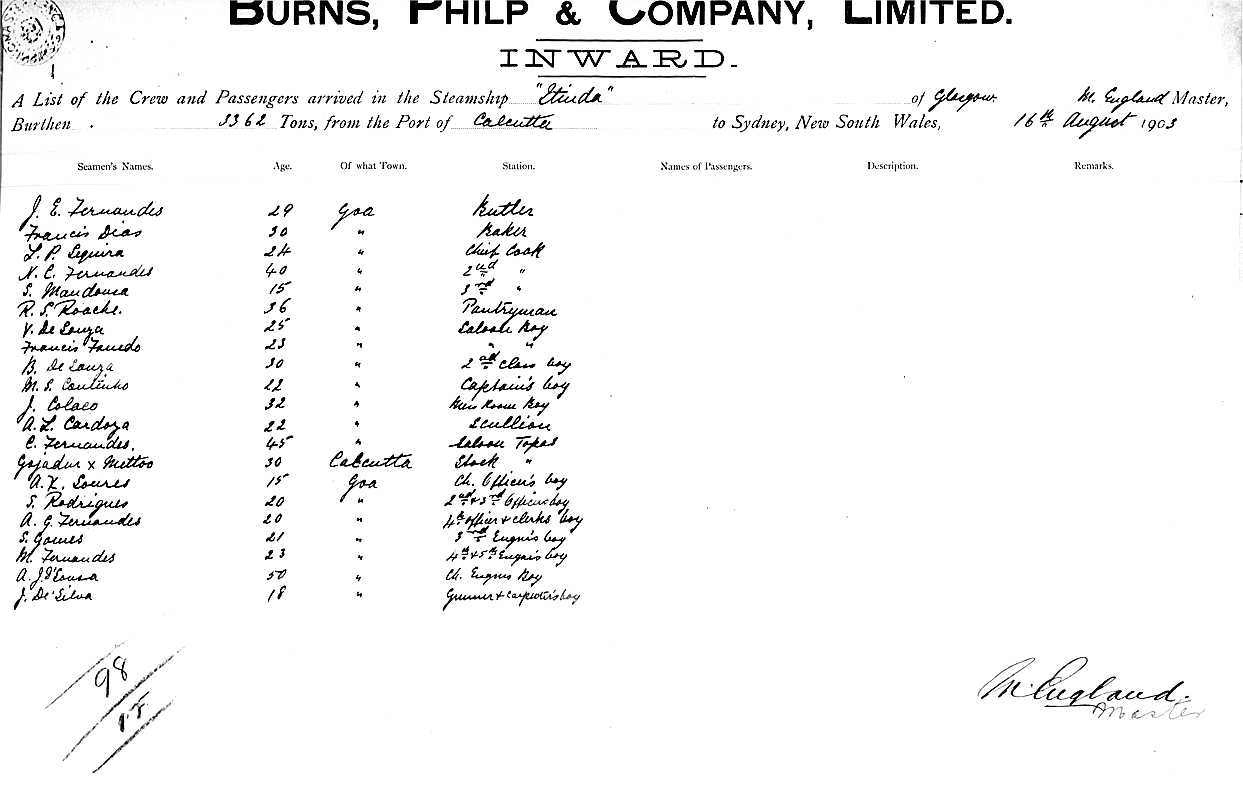 BURNS, PHILP & COMPANY, LIMITED.
INWARD.
A List of the Crew and Passengers arrived in the Steamship "Itinda" of Glasgow M. England Master,
Burthen 3362 Tons, from the Port of Calcutta to Sydney, New South Wales, 16th August 1903
Seamen's Names. Age. Of what Town. Station. Names of Passengers. Description. Remarks.
J. E. Fernandes 29 Goa Butler
Francis Dias 30 " Baker
L. P. Sequira 24 " Chief Cook
N. C. Fernandes 40 " 2nd "
S. Mandonca 15 " 3rd "
R. S. Roache. 36 " Pantryman
V. De Souza 25 " Saloon Boy
Francis 23 " " "
B. De Souza 30 " 2nd Class boy
M. S. Coutinho 22 " Captain's boy
J. Colaco 32 " Boy
A. L. Cardoza 22 " Scullion
C. Fernandes. 45 " Saloon Topas
Gojadur x Mettoo 30 Calcutta "
A. X. Soures 15 Goa Ch. Officer's boy
S. Rodrigues 20 " 2nd & 3rd Officers boy
A. G. Fernandes 20 " 4th officer & clerks boy
S. Gomes 21 " 3rd Engnr's boy
M. Fernandes 23 " 4th & 5th Engnr's boy
A. J. D'Sousa 50 " Ch. Engnrs Boy
J. De'Silva 18 " Gunner & Carpenter's boy
98
M. England.
Master